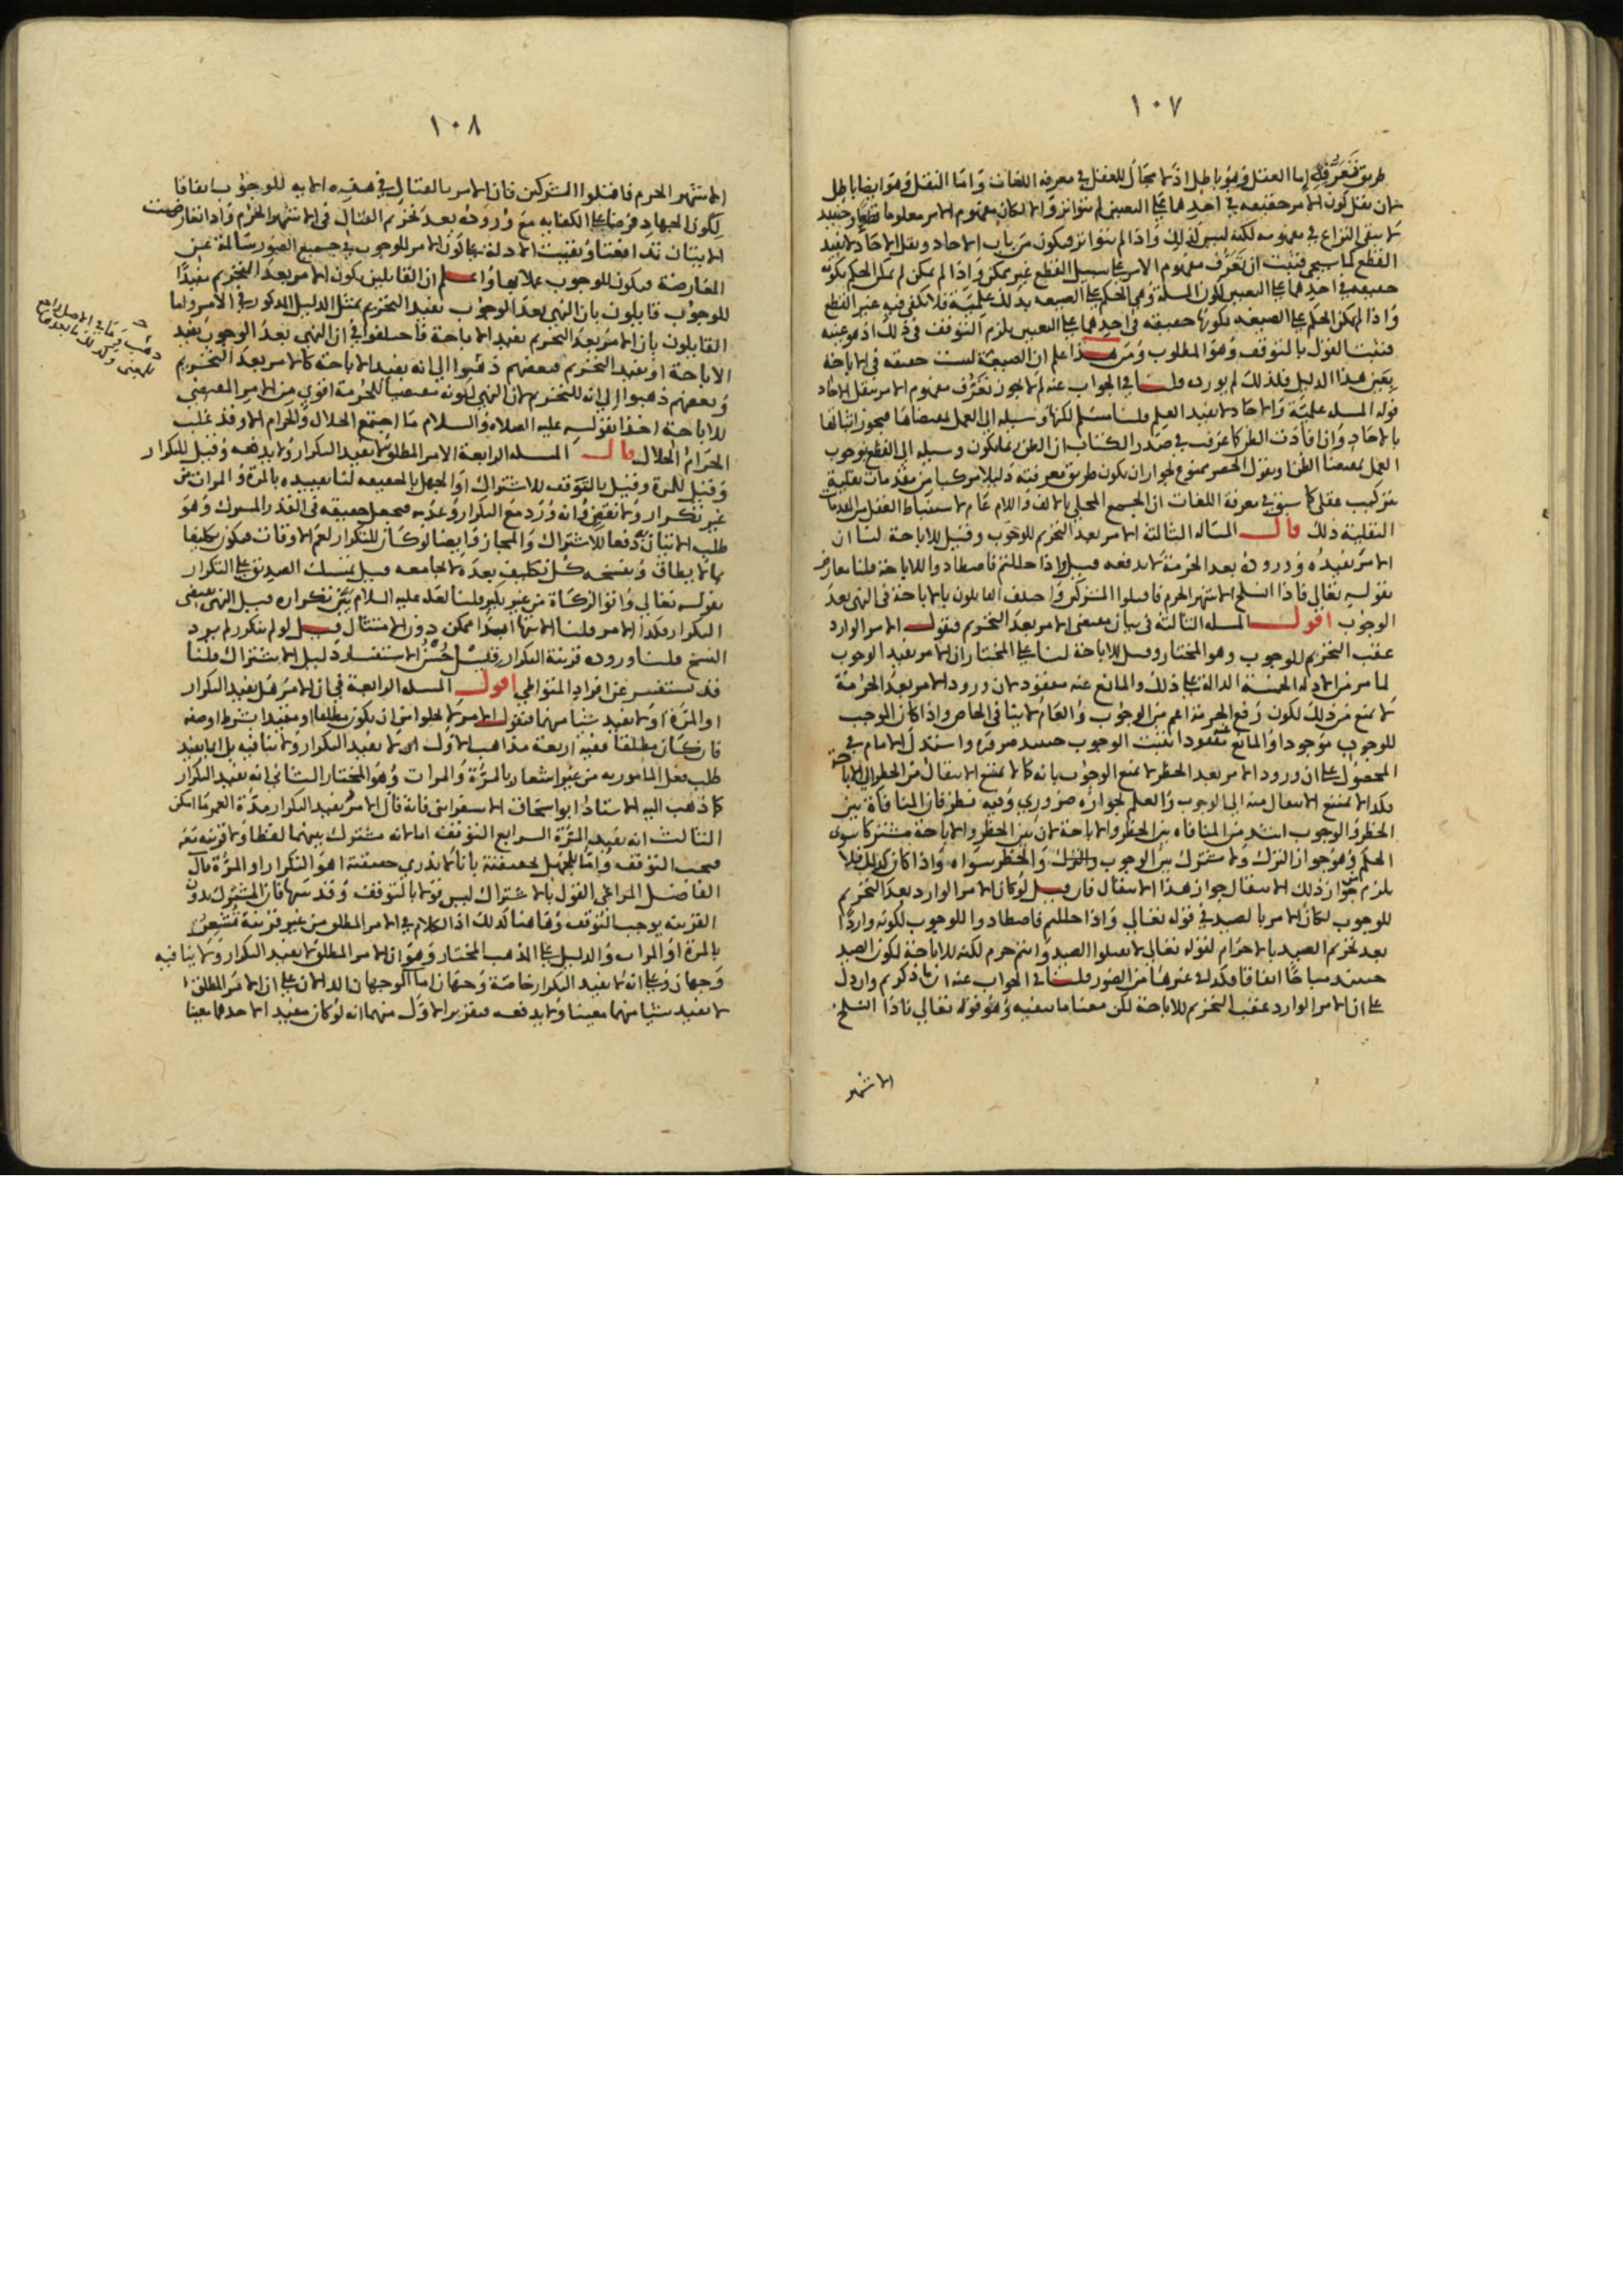 ١٠٧
طريق تعرفه اما العقل وهو باطل اذ لا مجال للعقل في معرفة اللغات واما النقل وهو ايضا باطل
لان نقل كون الامر حقيقة في احدهما على التعيين لم يتواتر والا لكان مفهوم الامر معلوما قطعا وحينئذ
لا يبقى النزاع في مفهومه لكنه ليس كذلك واذا لم يتواتر فيكون من باب الاحاد ونقل الاحاد لا يفيد
القطع كما سيجي فثبت ان تعرف مفهوم الامر على سبيل القطع غير ممكن واذا لم يمكن لم يمكن الحكم بكونه
حقيقة في احدهما على التعيين لكون المسلة وهي الحكم على الصيغة بذلك علمية فلا يكفي فيه غير القطع
واذا لم يمكن الحكم على الصيغة بكونها حقيقة في احدهما على التعيين يلزم التوقف في ذلك اذ هو عينه
فثبت القول بالتوقف وهو المطلوب ومن هذا علم ان الصيغة ليست حقيقة في الاباحة
بعين هذا الدليل فلذلك لم يورده قلنا في الجواب عنه لم لا يجوز تعرف مفهوم الامر بنقل الاحاد
قوله المسله علمية والاحاد لا يفيد العلم قلنا مسلم لكنها وسيلة الى العمل بمقتضاها فيجوز اثباتها
بالاحاد وان افادت الظن كما عرفت في صدر الكتاب ان الظن بما يكون وسيلة الى القطع بوجوب
العمل بمقتضى الظن او نقول الحصر ممنوع لجواز ان يكون طريق معرفته دليلا مركبا من مقدمات نقلية
بتركيب عقلي كما سبق في معرفة اللغات ان الجمع المحلى بالالف واللام عام لاستنباط العقل من المقدمات
النقلية ذلك قال المسالة الثالثة الامر بعد التحريم للوجوب وقيل للاباحة لنا ان
الامر يفيده ووروده بعد الحرمة لا يدفعه قيل واذا حللتم فاصطادوا للاباحة قلنا معارض
بقوله تعالى فاذا انسلخ الاشهر الحرم فاقتلوا المشركين واختلف القايلون بالاباحة في النهي بعد
الوجوب اقول المسله الثالثة في بيان مقتضى الامر بعد التحريم فنقول الامر الوارد
عقب التحريم للوجوب وهو المختار وقيل للاباحة لنا على المختار ان الامر يفيد الوجوب
لما مر من الادلة الخمسة الدالة على ذلك والمانع عنه مفقود لان ورود الامر بعد الحرمة
لا يمنع من ذلك لكون رفع الحرمة اعم من الوجوب والعام لا ينافي الخاص واذا كان الموجب
للوجوب موجودا والمانع عنه مفقودا يثبت الوجوب حينئذ ضرورة واستدل الامام في
المحصول على ان ورود الامر بعد الحظر لا يمنع الوجوب بانه كما لا يمتنع الانتقال من الحظر الى الاباحة
فكذا لا يمتنع الانتقال منه الى الوجوب والعلم بجوازه ضروري وفيه نظر فان المنافاة بين
الحظر والوجوب اشد من المنافاة بين الحظر والاباحة لان بين الحظر والاباحة مشتركا سوى
الحكم وهو جواز الترك ولا مشترك بين الوجوب والترك والحظر سواه واذا كان كذلك فلا
يلزم من جواز ذلك الانتقال جواز هذا الانتقال فان قيل لو كان الامر الوارد بعد التحريم
للوجوب لكان الامر بالصيد في قوله تعالى واذا حللتم فاصطادوا للوجوب لكونه واردا
بعد تحريم الصيد بالاحرام لقوله تعالى لا تقتلوا الصيد وانتم حرم لكنه للاباحة لكون الصيد
حينئذ مباحا اتفاقا فكذا في غيرها من الصور قلنا في الجواب عنه ان ما ذكرتم وان دل
على ان الامر الوارد عقب التحريم للاباحة لكن معنا ما ينفيه وهو قوله تعالى فاذا انسلخ
الاشهر
١٠٨
الاشهر الحرم فاقتلوا المشركين فان الامر بالقتال في هذه الاية للوجوب اتفاقا
لكون الجهاد فرضا على الكفاية مع وروده بعد تحريم القتال في الاشهر الحرم واذا تعارضت
الايتان تدافعتا وبقيت الادلة على كون الامر للوجوب في جميع الصور سالمة عن
المعارضة فيكون للوجوب عملا بها واعلم ان القايلين بكون الامر بعد التحريم مفيدا
للوجوب قايلون بان النهي بعد الوجوب يفيد التحريم بمثل الدليل المذكور في الامر واما
القايلون بان الامر بعد التحريم يفيد الاباحة فاختلفوا في ان النهي بعد الوجوب يفيد
الاباحة او يفيد التحريم فبعضهم ذهبوا الى انه يفيد الاباحة كالامر بعد التحريم
وبعضهم ذهبوا الى انه للتحريم لان النهي لكونه مقتضيا للحرمة اقوى من الامر المقتضي
للاباحة اخذا بقوله عليه الصلاه والسلام ما اجتمع الحلال والحرام الا وقد غلب
الحرام الحلال قال المسله الرابعة الامر المطلق لا يفيد التكرار ولا يدفعه وقيل للتكرار
وقيل للمرة وقيل بالتوقف للاشتراك او الجهل بالحقيقه لنا تقييده بالمرة والمرات من
غير تكرار ولا نقض وانه ورد مع التكرار وعدمه فيجعل حقيقه في القدر المشترك وهو
طلب الاتيان به دفعا للاشتراك والمجاز وايضا لو كان للتكرار لعم الاوقات فيكون تكليفا
بما لا يطاق وينسخه كل تكليف بعده لا يجامعه قيل تمسك الصديق على التكرار
بقوله تعالى واتوا الزكاة من غير نكير قلنا لعله عليه السلام بين تكراره قيل النهي يقتضي
التكرار فكذا الامر قلنا الانتها ابدا ممكن دون الامتثال قيل لو لم يتكرر لم يرد
النسخ قلنا وروده قرينة التكرار قيل حسن الاستفسار دليل الاشتراك قلنا
قد يستفسر عن افراد المتواطي اقول المسله الرابعة في ان الامر هل يفيد التكرار
او المرة او لا يفيد شيا منهما فنقول الامر لا يخلوا من ان يكون مطلقا او مقيدا بشرط او صفة
فان كان مطلقا ففيه اربعة مذاهب الاول انه لا يفيد التكرار ولا ينافيه بل انما يفيد
طلب فعل المامور به من غير اشعار بالمرة والمرات وهو المختار الثاني انه يفيد التكرار
كما ذهب اليه الاستاذ ابو اسحاق الاسفرايني فانه قال الامر يفيد التكرار مدة العمر ما امكن
الثالث انه يفيد المرة الرابع التوقف اما لانه مشترك بينهما لفظا ولا قرينه ثمه
فيجب التوقف واما للجهل بحقيقته بانا لا ندري حقيقته اهو التكرار او المرة قال
الفاضل المراغي القول بالاشتراك ليس قولا بالتوقف وقد سها فان المشترك بدون
القرينه يوجب التوقف وهاهنا كذلك اذ الكلام في الامر المطلق من غير قرينة تشعر
بالمرة او المرات والدليل على المذهب المختار وهو ان الامر المطلق لا يفيد التكرار ولا ينافيه
وجهان وعلى انه لا يفيد التكرار خاصة وجهان اما الوجهان الدالان على ان الامر المطلق
لا يفيد شيا منهما معينا ولا يدفعه فتقرير الاول منهما انه لو كان مفيدا لاحدهما معينا